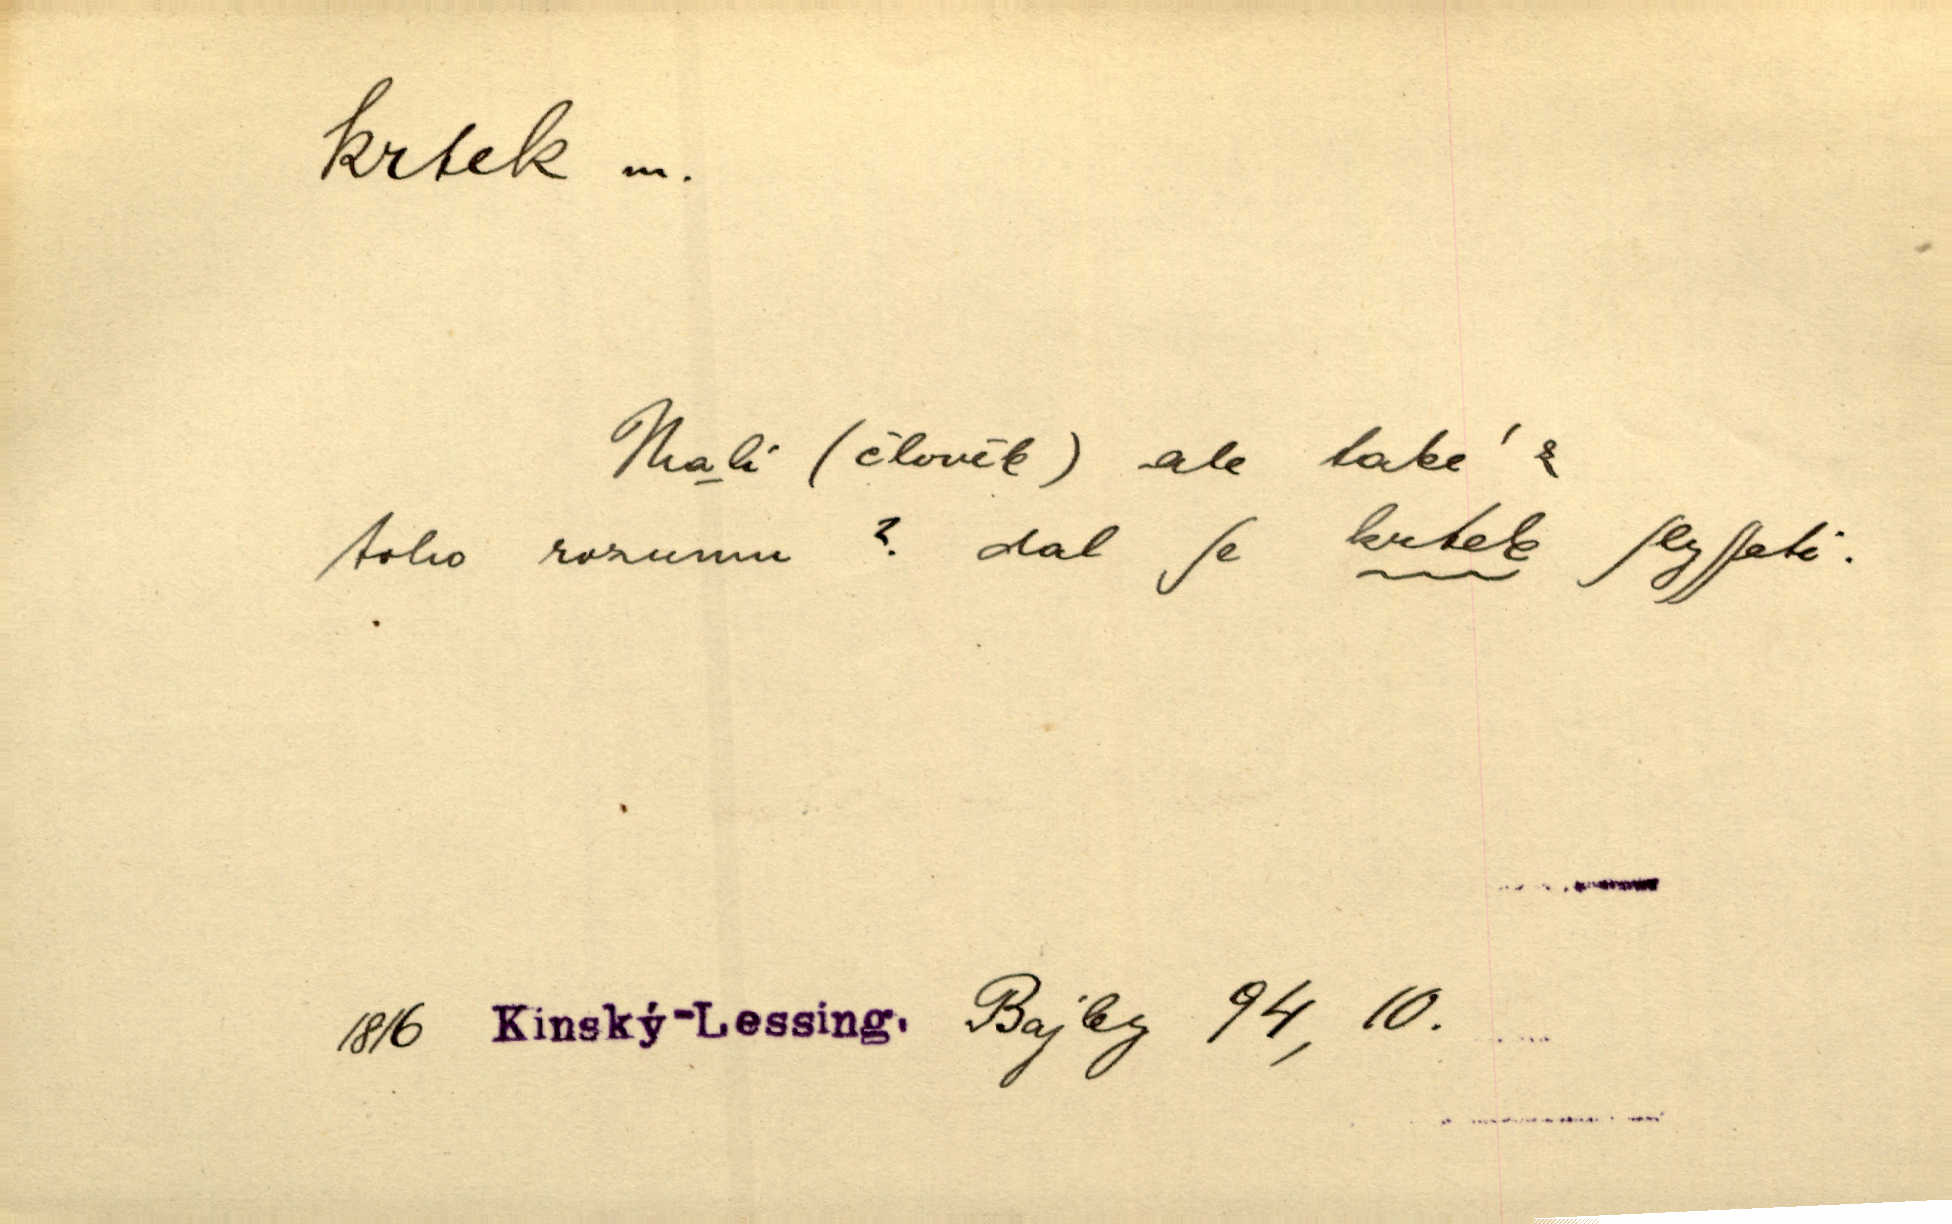 krtek m.
Mali (člověk) ale také z
toho rozumu? dal ſe krtek ſlyſſeti.
1816 Kinský-Lessing. Bajky 94, 10.